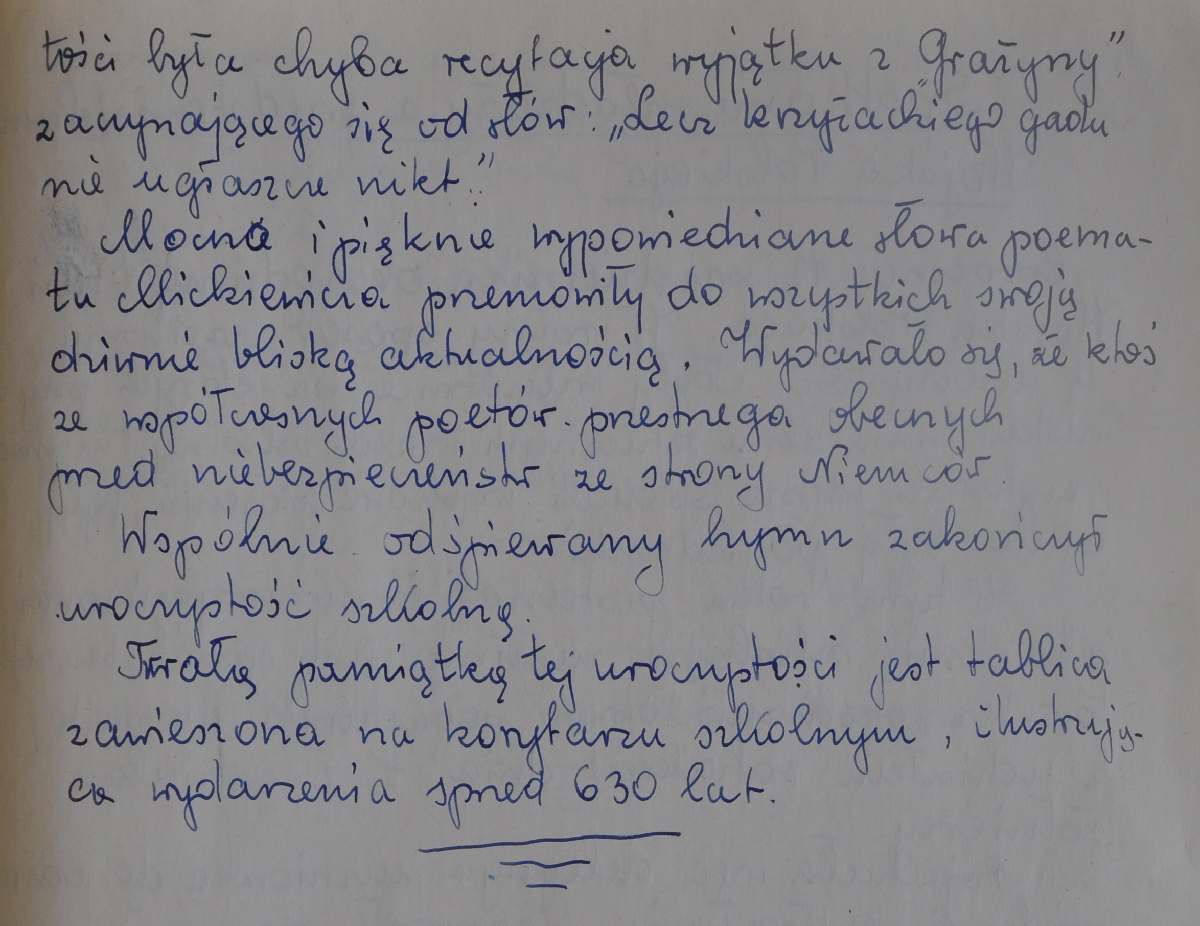 tości była chyba recytacja wyjątku z „Grażyny”
zaczynającego się od słów: „Lecz krzyżackiego gadu
nie ugłaszcze nikt.”
Mocne i pięknie wypowiedziane słowa poema-
tu Mickiewicza przemówiły do wszystkich swoją
dziwnie bliską aktualnością. Wydawało się, że ktoś
ze współczesnych poetów przestrzega obecnych
przed niebezpieczeństw ze strony Niemców.
Wspólnie odśpiewany hymn zakończył
uroczystość szkolną.
Trwałą pamiątką tej uroczystości jest tablica
zawieszona na korytarzu szkolnym, ilustrują-
ca wydarzenia sprzed 630 lat.